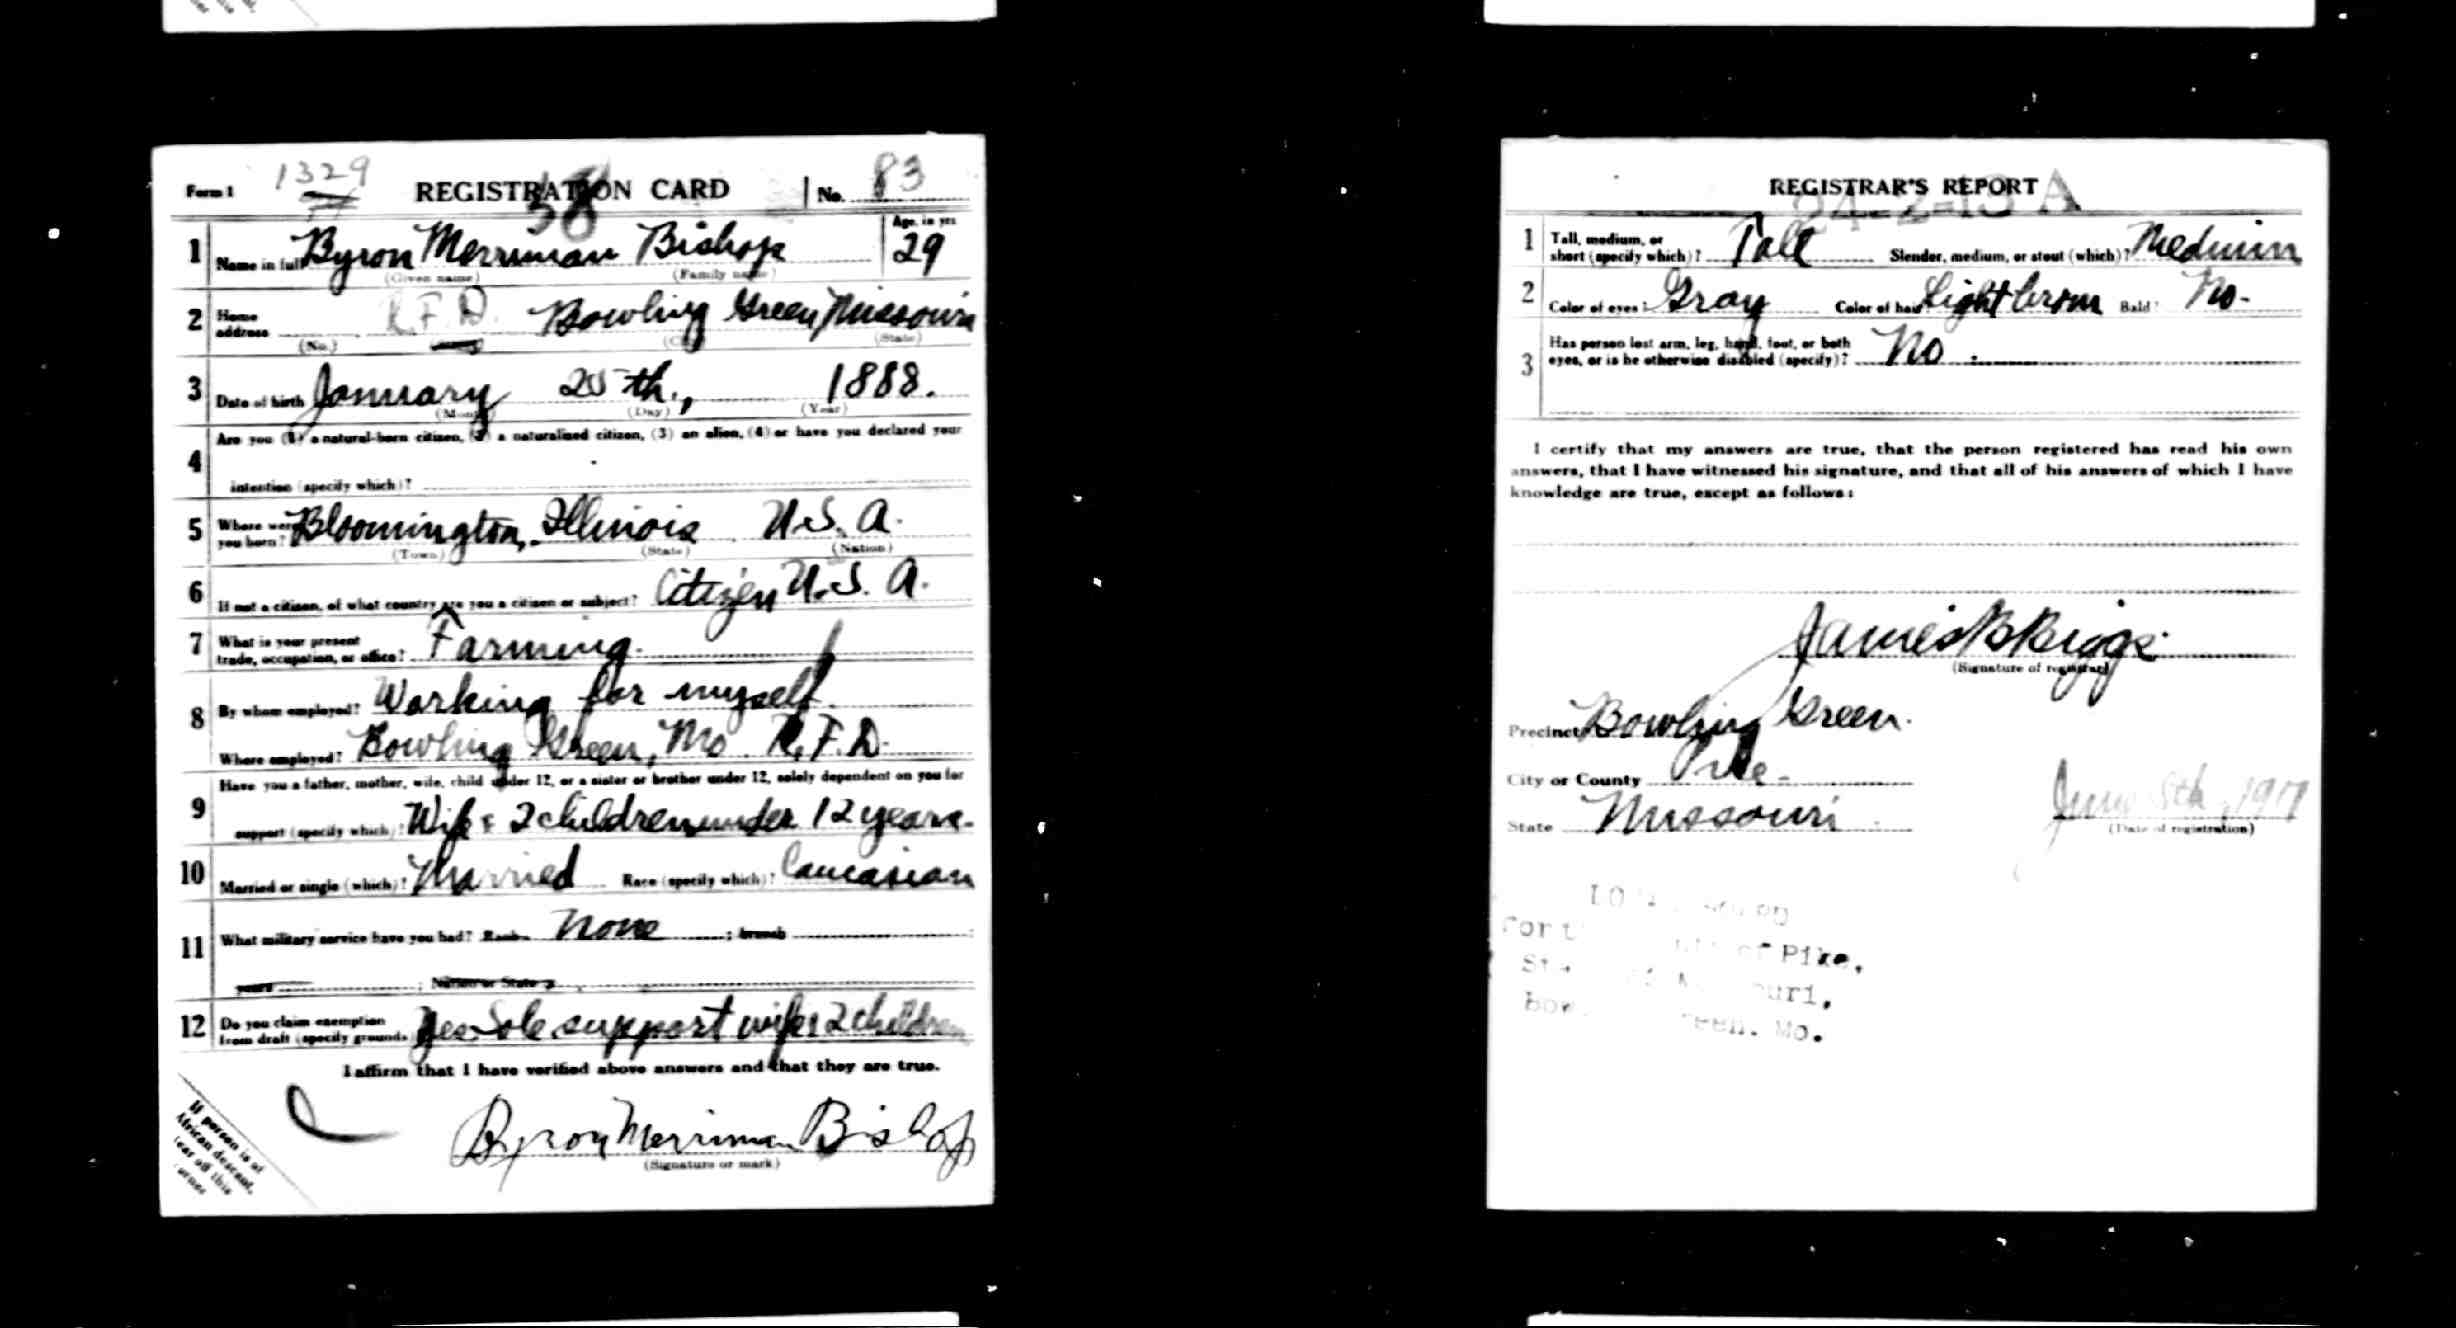 Form 1 1329 REGISTRATION CARD No. 83
58
1 Name in full Byron Merriman Bishop Age, in yrs 29
(Given name) (Family name)
2 Home address R.F.D. Bowling Green, Missouri
(No.) (City) (State)
3 Date of birth January 25th, 1888.
(Month) (Day) (Year)
4 Are you (1) a natural-born citizen, (2) a naturalized citizen, (3) an alien, (4) or have you declared your
intention (specify which)?
5 Where were you born? Bloomington, Illinois U.S.A.
(Town) (State) (Nation)
6 If not a citizen, of what country are you a citizen or subject? Citizen U.S.A.
7 What is your present trade, occupation, or office? Farming.
8 By whom employed? Working for myself.
Where employed? Bowling Green, Mo R.F.D.
9 Have you a father, mother, wife, child under 12, or a sister or brother under 12, solely dependent on you for
support (specify which)? Wife & 2 children under 12 years.
10 Married or single (which)? Married Race (specify which)? Caucasian
11 What military service have you had? Rank None ; branch
years ; Nation or State
12 Do you claim exemption from draft (specify grounds)? Yes Sole support wife & 2 children
I affirm that I have verified above answers and that they are true.
Byron Merriman Bishop
(Signature or mark)
If person is of
African descent,
tear off this
corner
REGISTRAR'S REPORT
24-2-13 A
1 Tall, medium, or short (specify which)? Tall Slender, medium, or stout (which)? Medium
2 Color of eyes? Gray Color of hair? Light brown Bald? No.
3 Has person lost arm, leg, hand, foot, or both eyes, or is he otherwise disabled (specify)? No.
I certify that my answers are true, that the person registered has read his own
answers, that I have witnessed his signature, and that all of his answers of which I have
knowledge are true, except as follows:
James B Biggs
(Signature of registrar)
Precinct Bowling Green.
City or County Pike.
State Missouri
June 5th, 1917
(Date of registration)
of Pike,